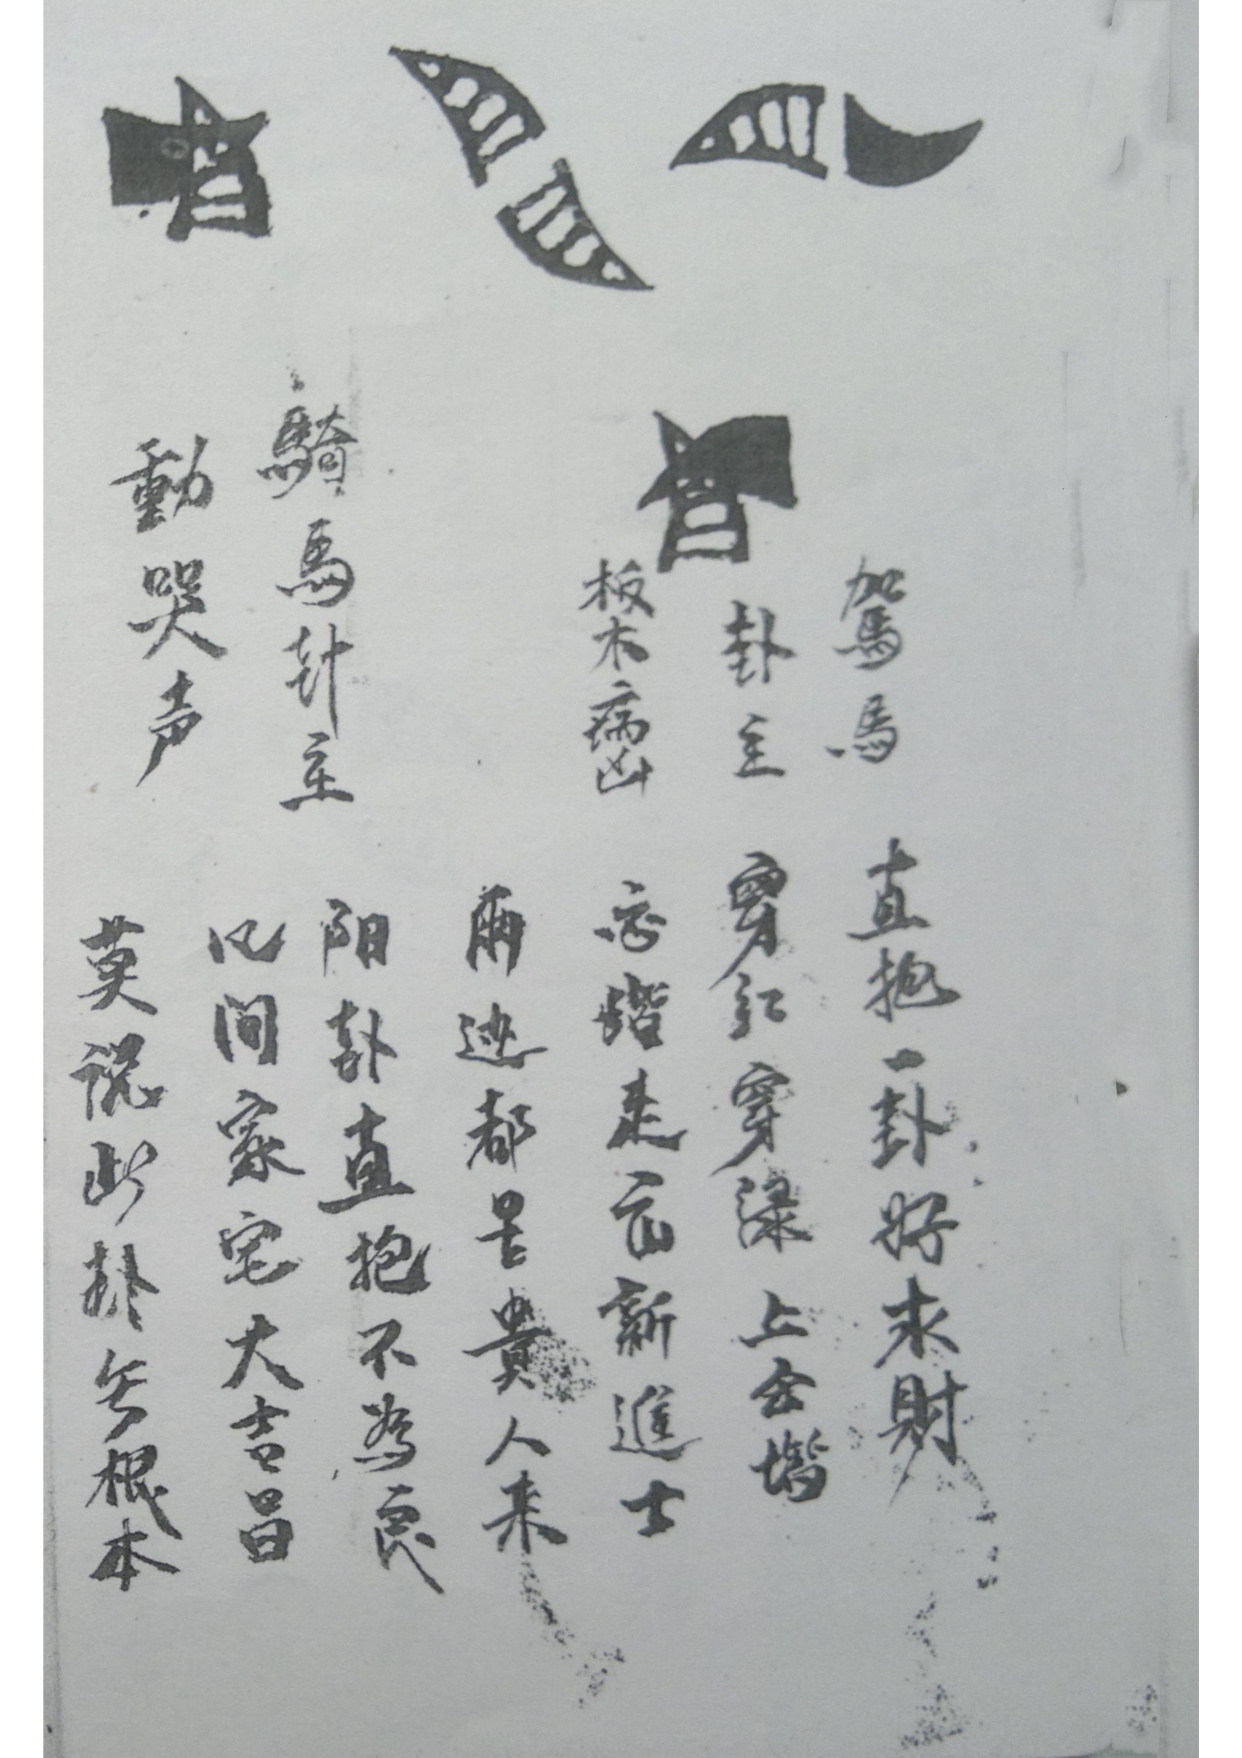 駕馬
卦主
板木病凶
騎馬卦主
動哭声
直抱一卦好求財
穿紅穿渌上会堦
忘堦走新進士
兩边都是貴人来
阳卦直抱不為良
凡間家宅大吉昌
莫说此卦无根本